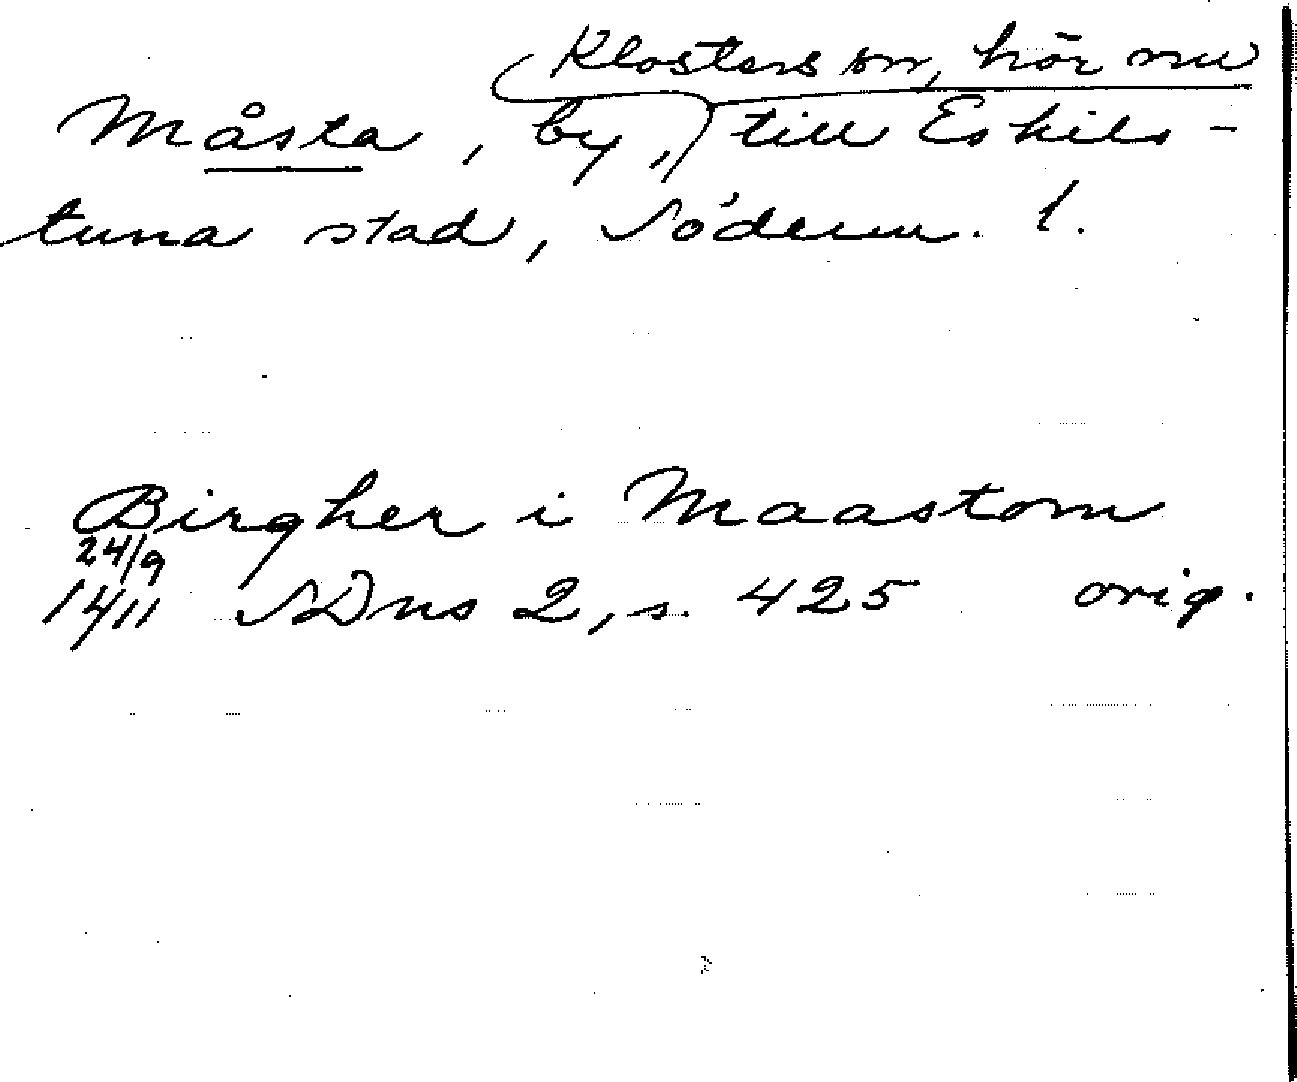 Klosters sn, hör nu
Måsta, by, till Eskils-
tuna stad, Söderm. l.
Birgher i Maastom
24/9
14/11 SDns 2, s. 425 orig.